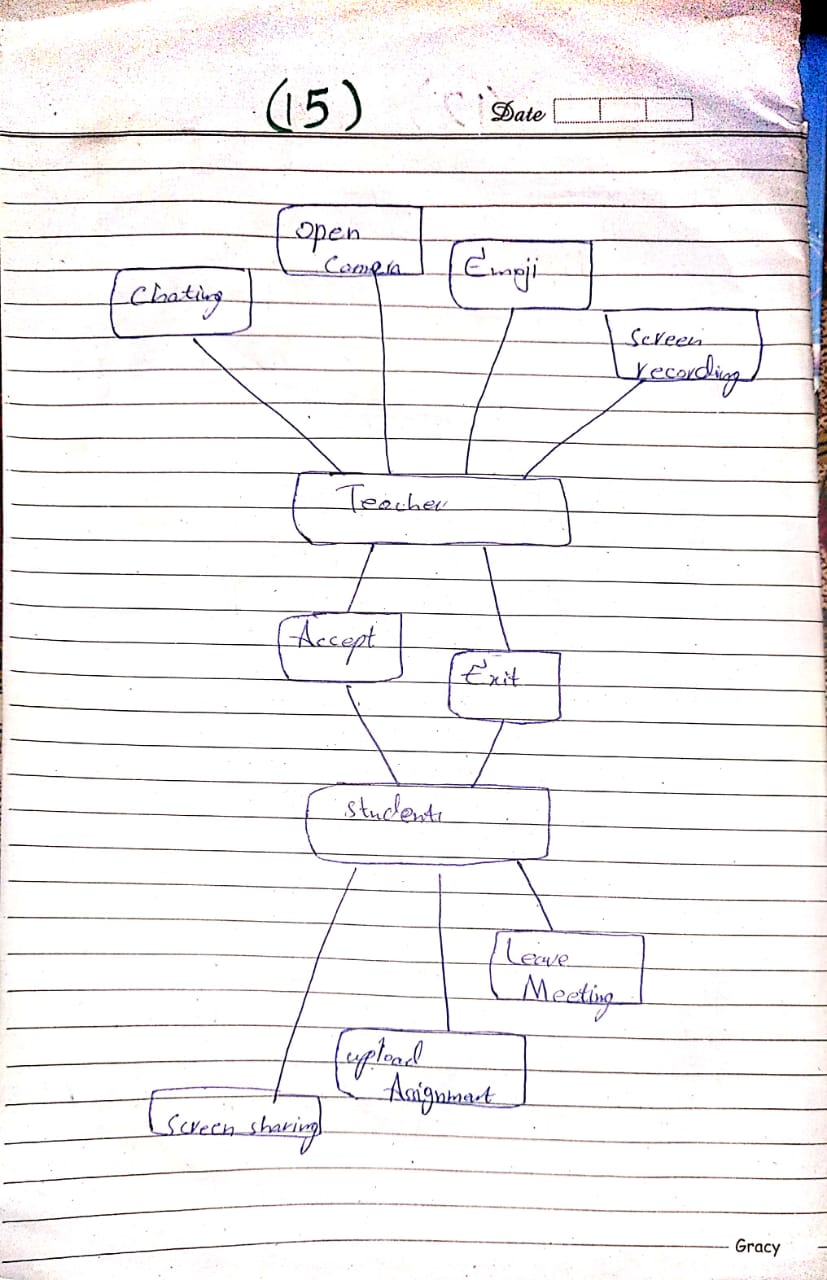 (15)
Date
Open
Camera
Emoji
Chating
Screen
recording
Teacher
Accept
Exit
Students
Leave
Meeting
upload
Asignmart
Screen sharing
Gracy